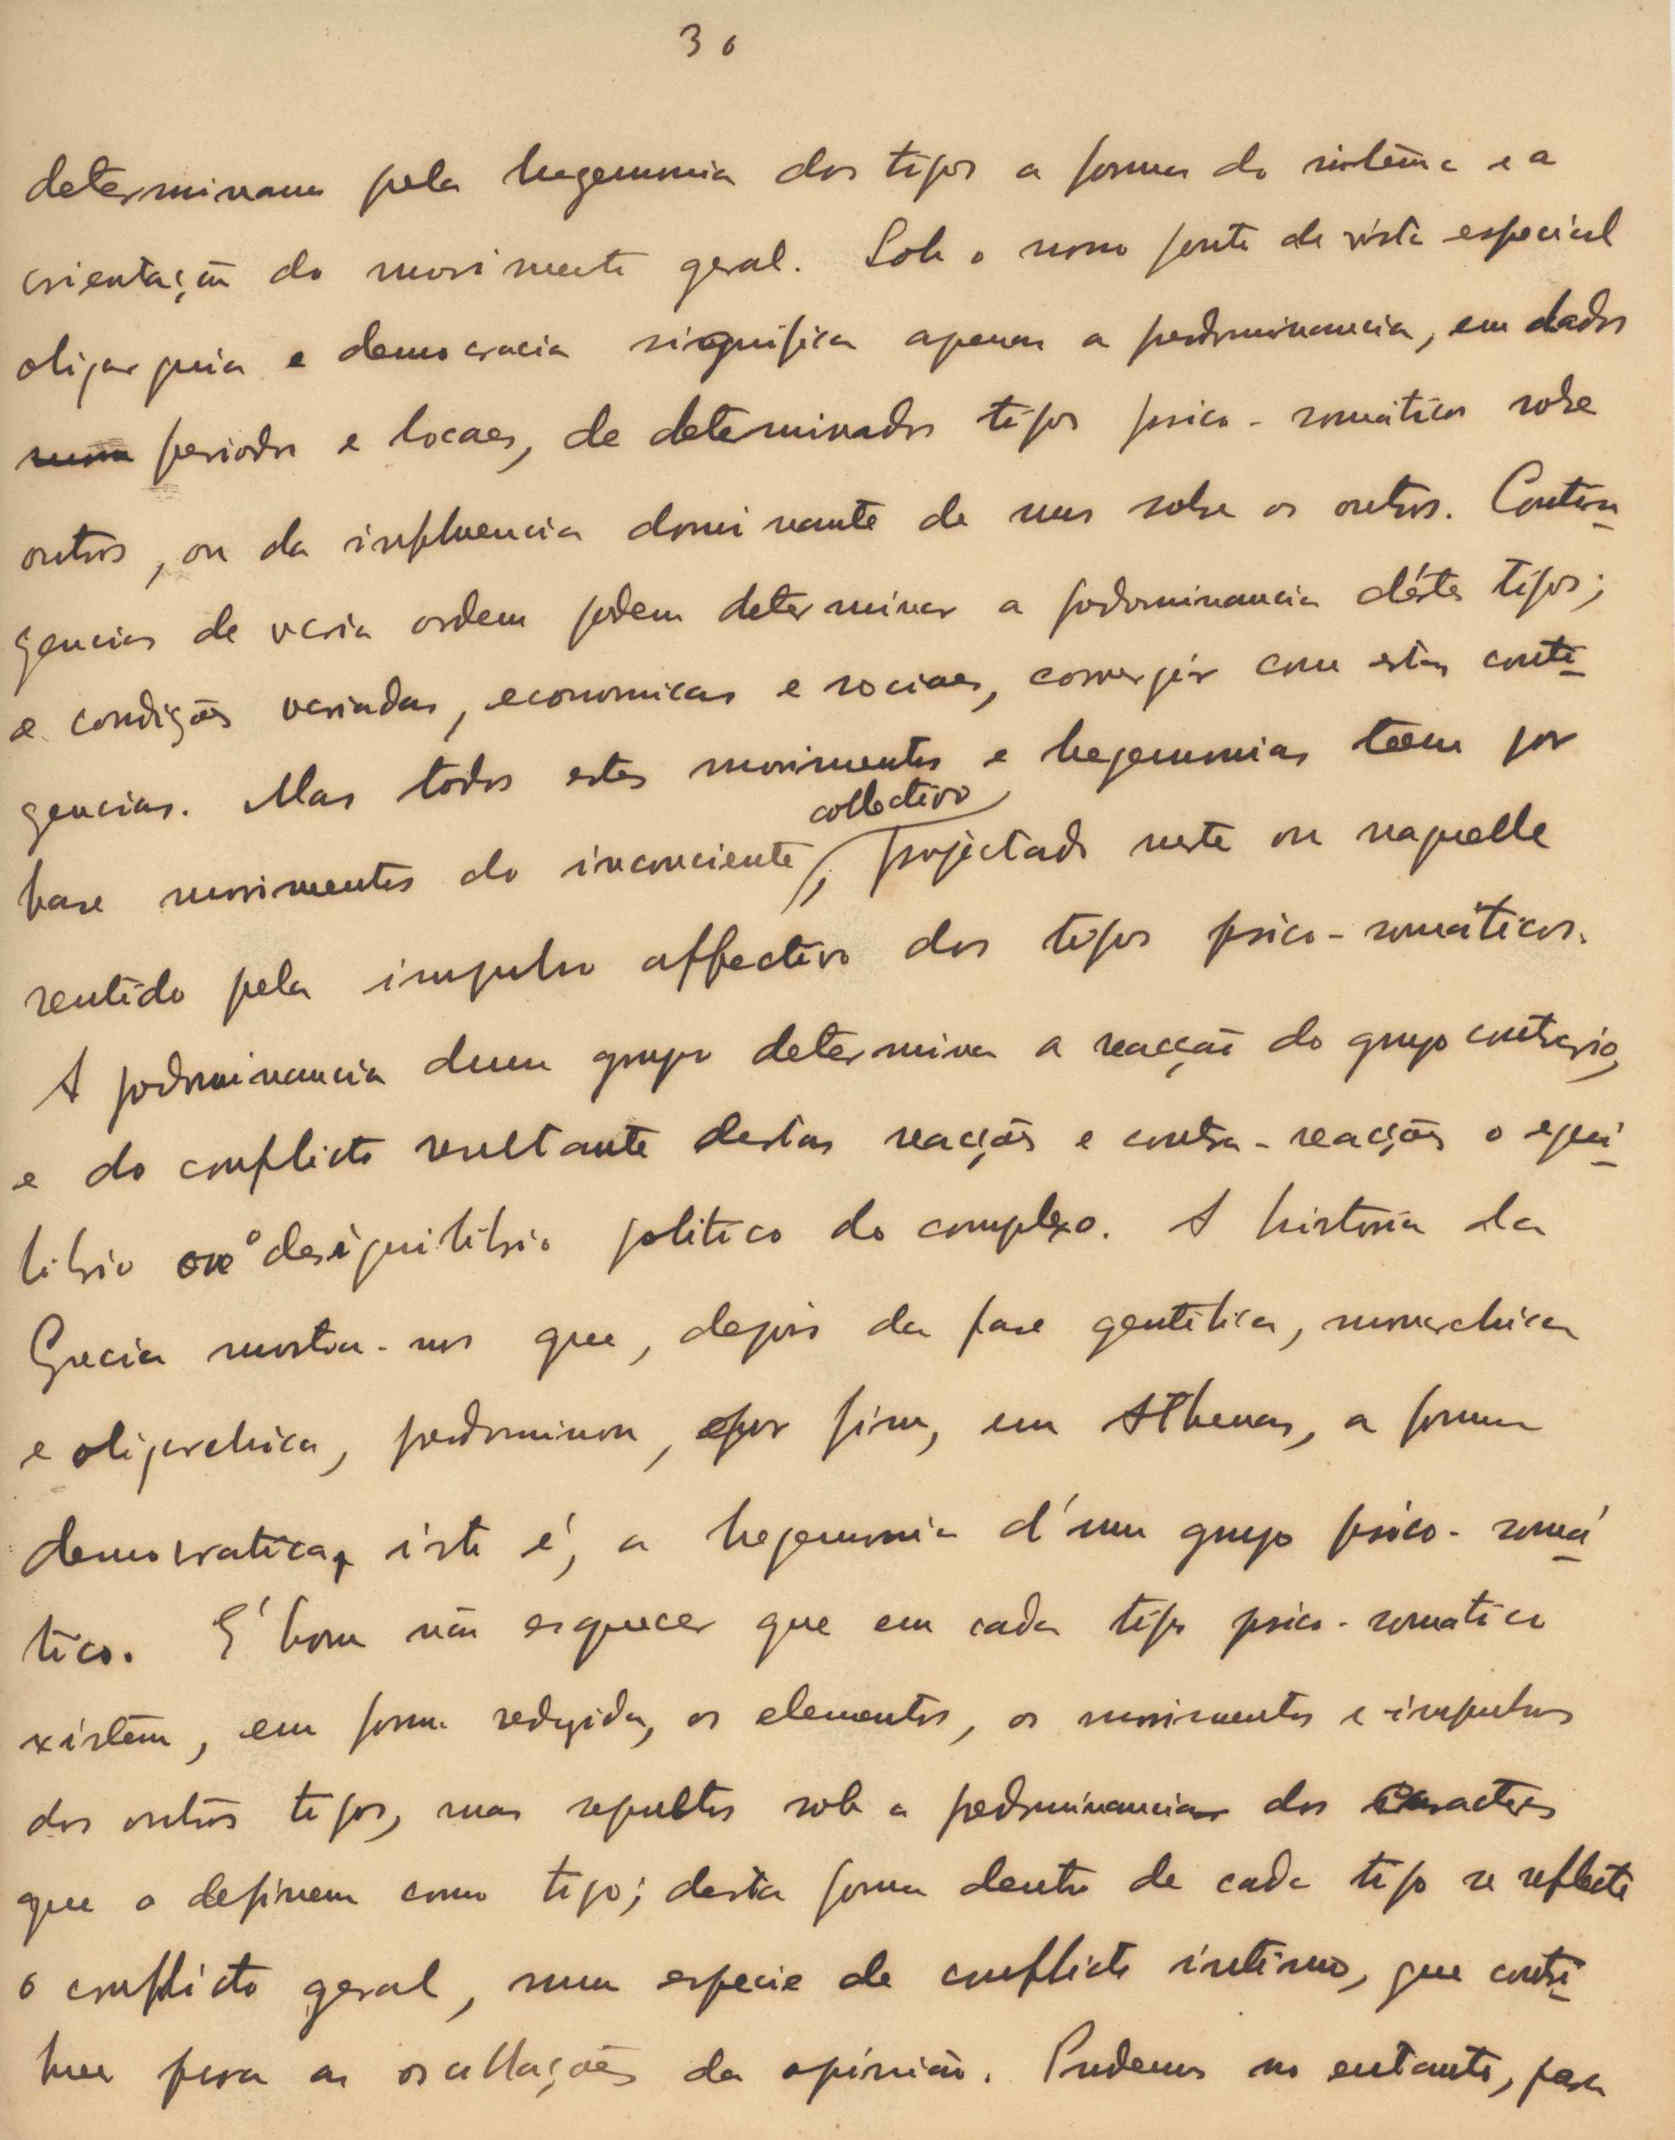 30
determinam pela hegemonia dos tipos a forma do sistema e a
orientação do movimento geral. Sob o nosso ponto de vista especial
oligarquia e democracia significa apenas a predominancia, em dados
periodos e locaes, de determinados tipos psico-somáticos sobre
outros, ou da influencia dominante de uns sobre os outros. Contin-
gencias de varia ordem podem determinar a predominancia déstes tipos;
e condições variadas, economicas e sociaes, convergir com estas conti-
gencias. Mas todos estes movimentos e hegemonias teem por
collectivo
base movimentos do inconciente, projectado neste ou naquelle
sentido pela impulso affectivo dos tipos psico-somáticos.
A predominancia dum grupo determina a reacção do grupo contrario,
e do conflicto resultante destas reacções e contra-reacções o equi-
librio ou o desiquilibrio politico do complexo. A historia da
Grecia mostra-nos que, depois da fase gentilica, monarchica
e oligarchica, predominou, por fim, em Athenas, a forma
democratica, isto é, a hegemonia d'um grupo psico-somá-
tico. É bom não esquecer que em cada tipo psico-somatico
existem, em forma reduzida, os elementos, os movimentos e impulsos
dos outros tipos, mas sepultos sob a predominancia dos caracteres
que o definem como tipo; desta forma dentro de cada tipo se reflecte
o conflicto geral, numa especie de conflicto intimo, que contri-
bue para as oscillações da opinião. Podemos no entanto, para